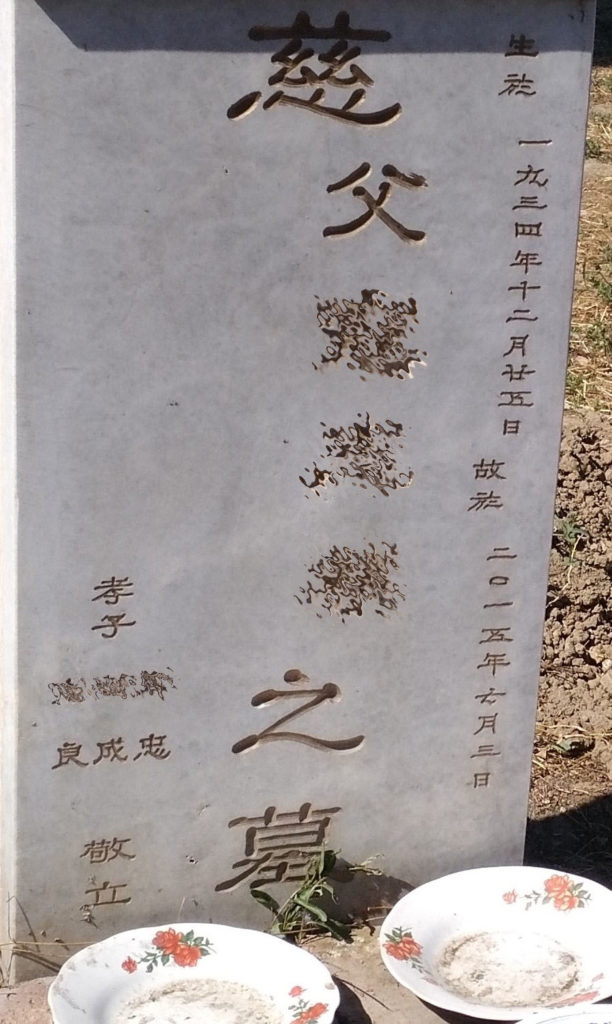 生於 一九三四年十二月廿五日 故於 二〇一五年七月三日
慈父之墓
孝子
忠
成
良
敬立